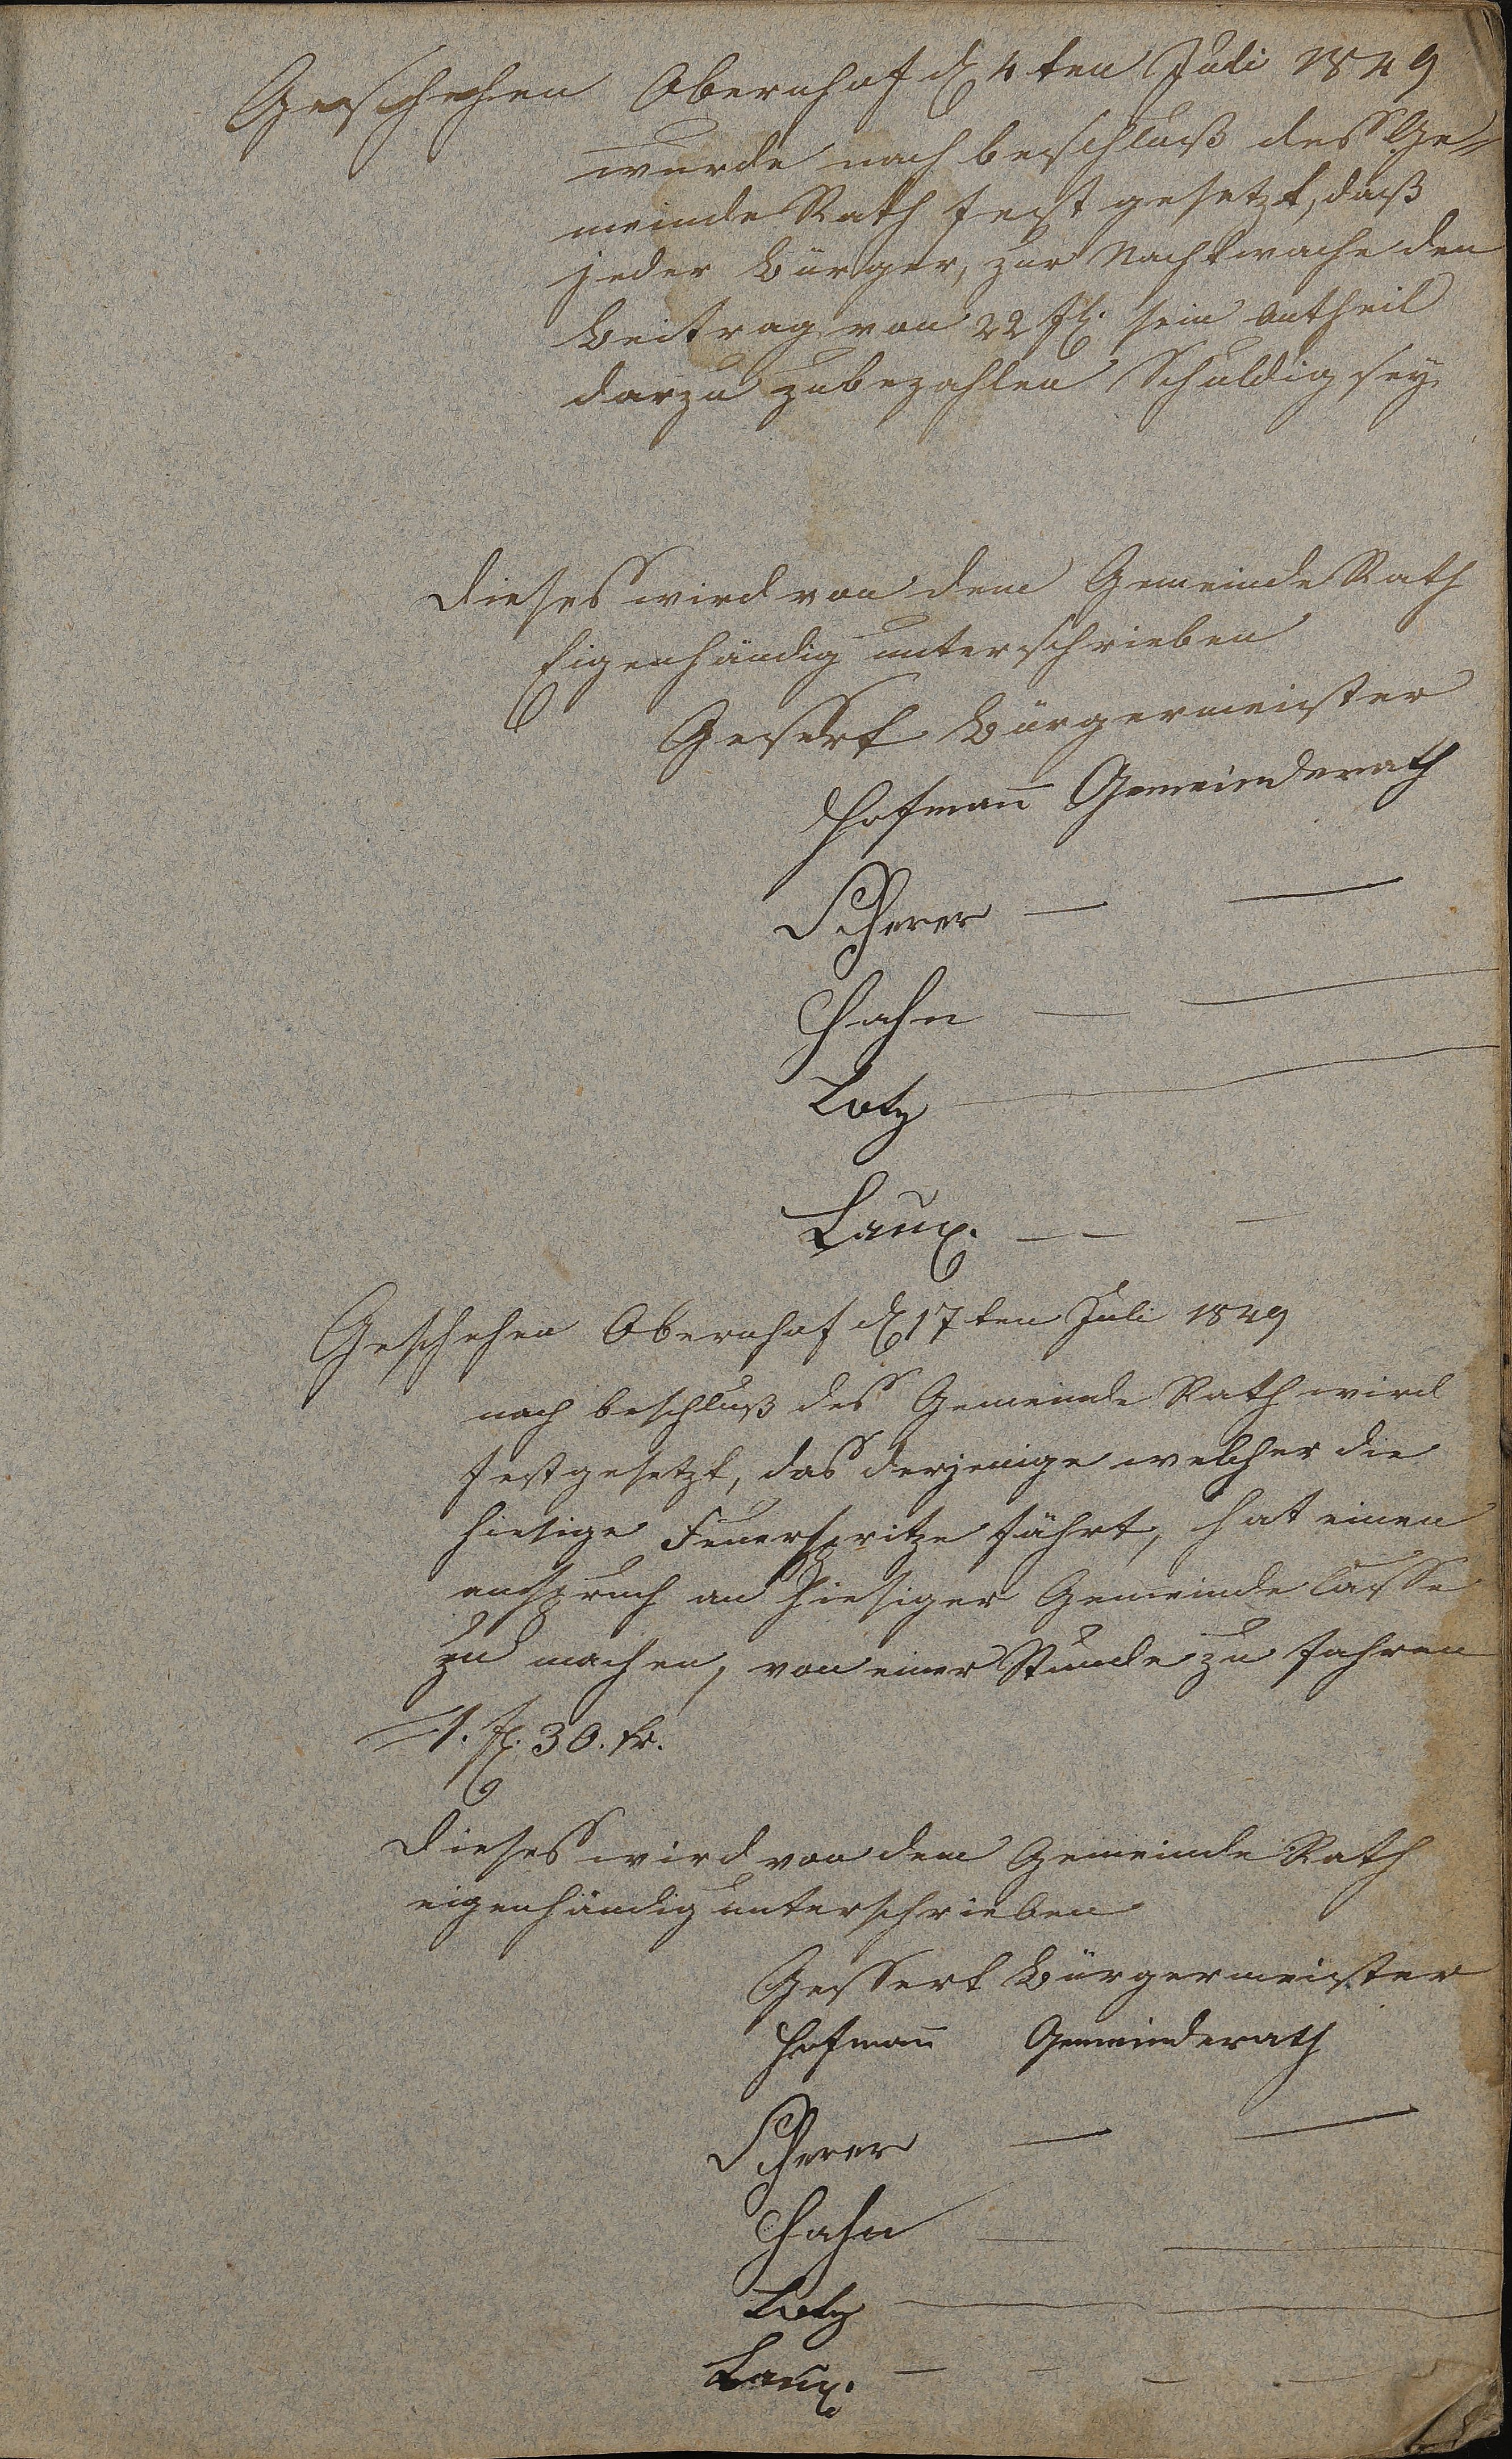 Geschehen Obernhof d 4ten Juli 1849
wurde nach beschluß des Ge=
meinde Rath fest gesetzt, daß
jeder Bürger, zur Nachtwache den
Beitrag von 22 fl. sein Antheil
darzu zubezahlen Schuldig sey.
Dieses wird von dem Gemeinde Rath
Eigenhändig unterschrieben
Gessert Bürgermeister
Hofman̅ Gemeinderath
Scherer — —
Hahn — —
Lotz —
Laux. — —
Geschehen Obernhof d 17ten Juli 1849
nach beschluß des Gemeinde Rath wird
festgesetzt, das derjenige welcher die
hiesige Feuerspritze fährt, hat einen
anspruch an hiesiger Gemeinde Casse
zu machen, von einer Stunde zu fahren
1. fl. 30. kr.
Dieses wird von dem Gemeinde Rath
eigenhändig unterschrieben
Gessert Bürgermeister
Hofman̅ Gemeinderath
Scherer — —
Hahn — —
Lotz — —
Laux. — — — —